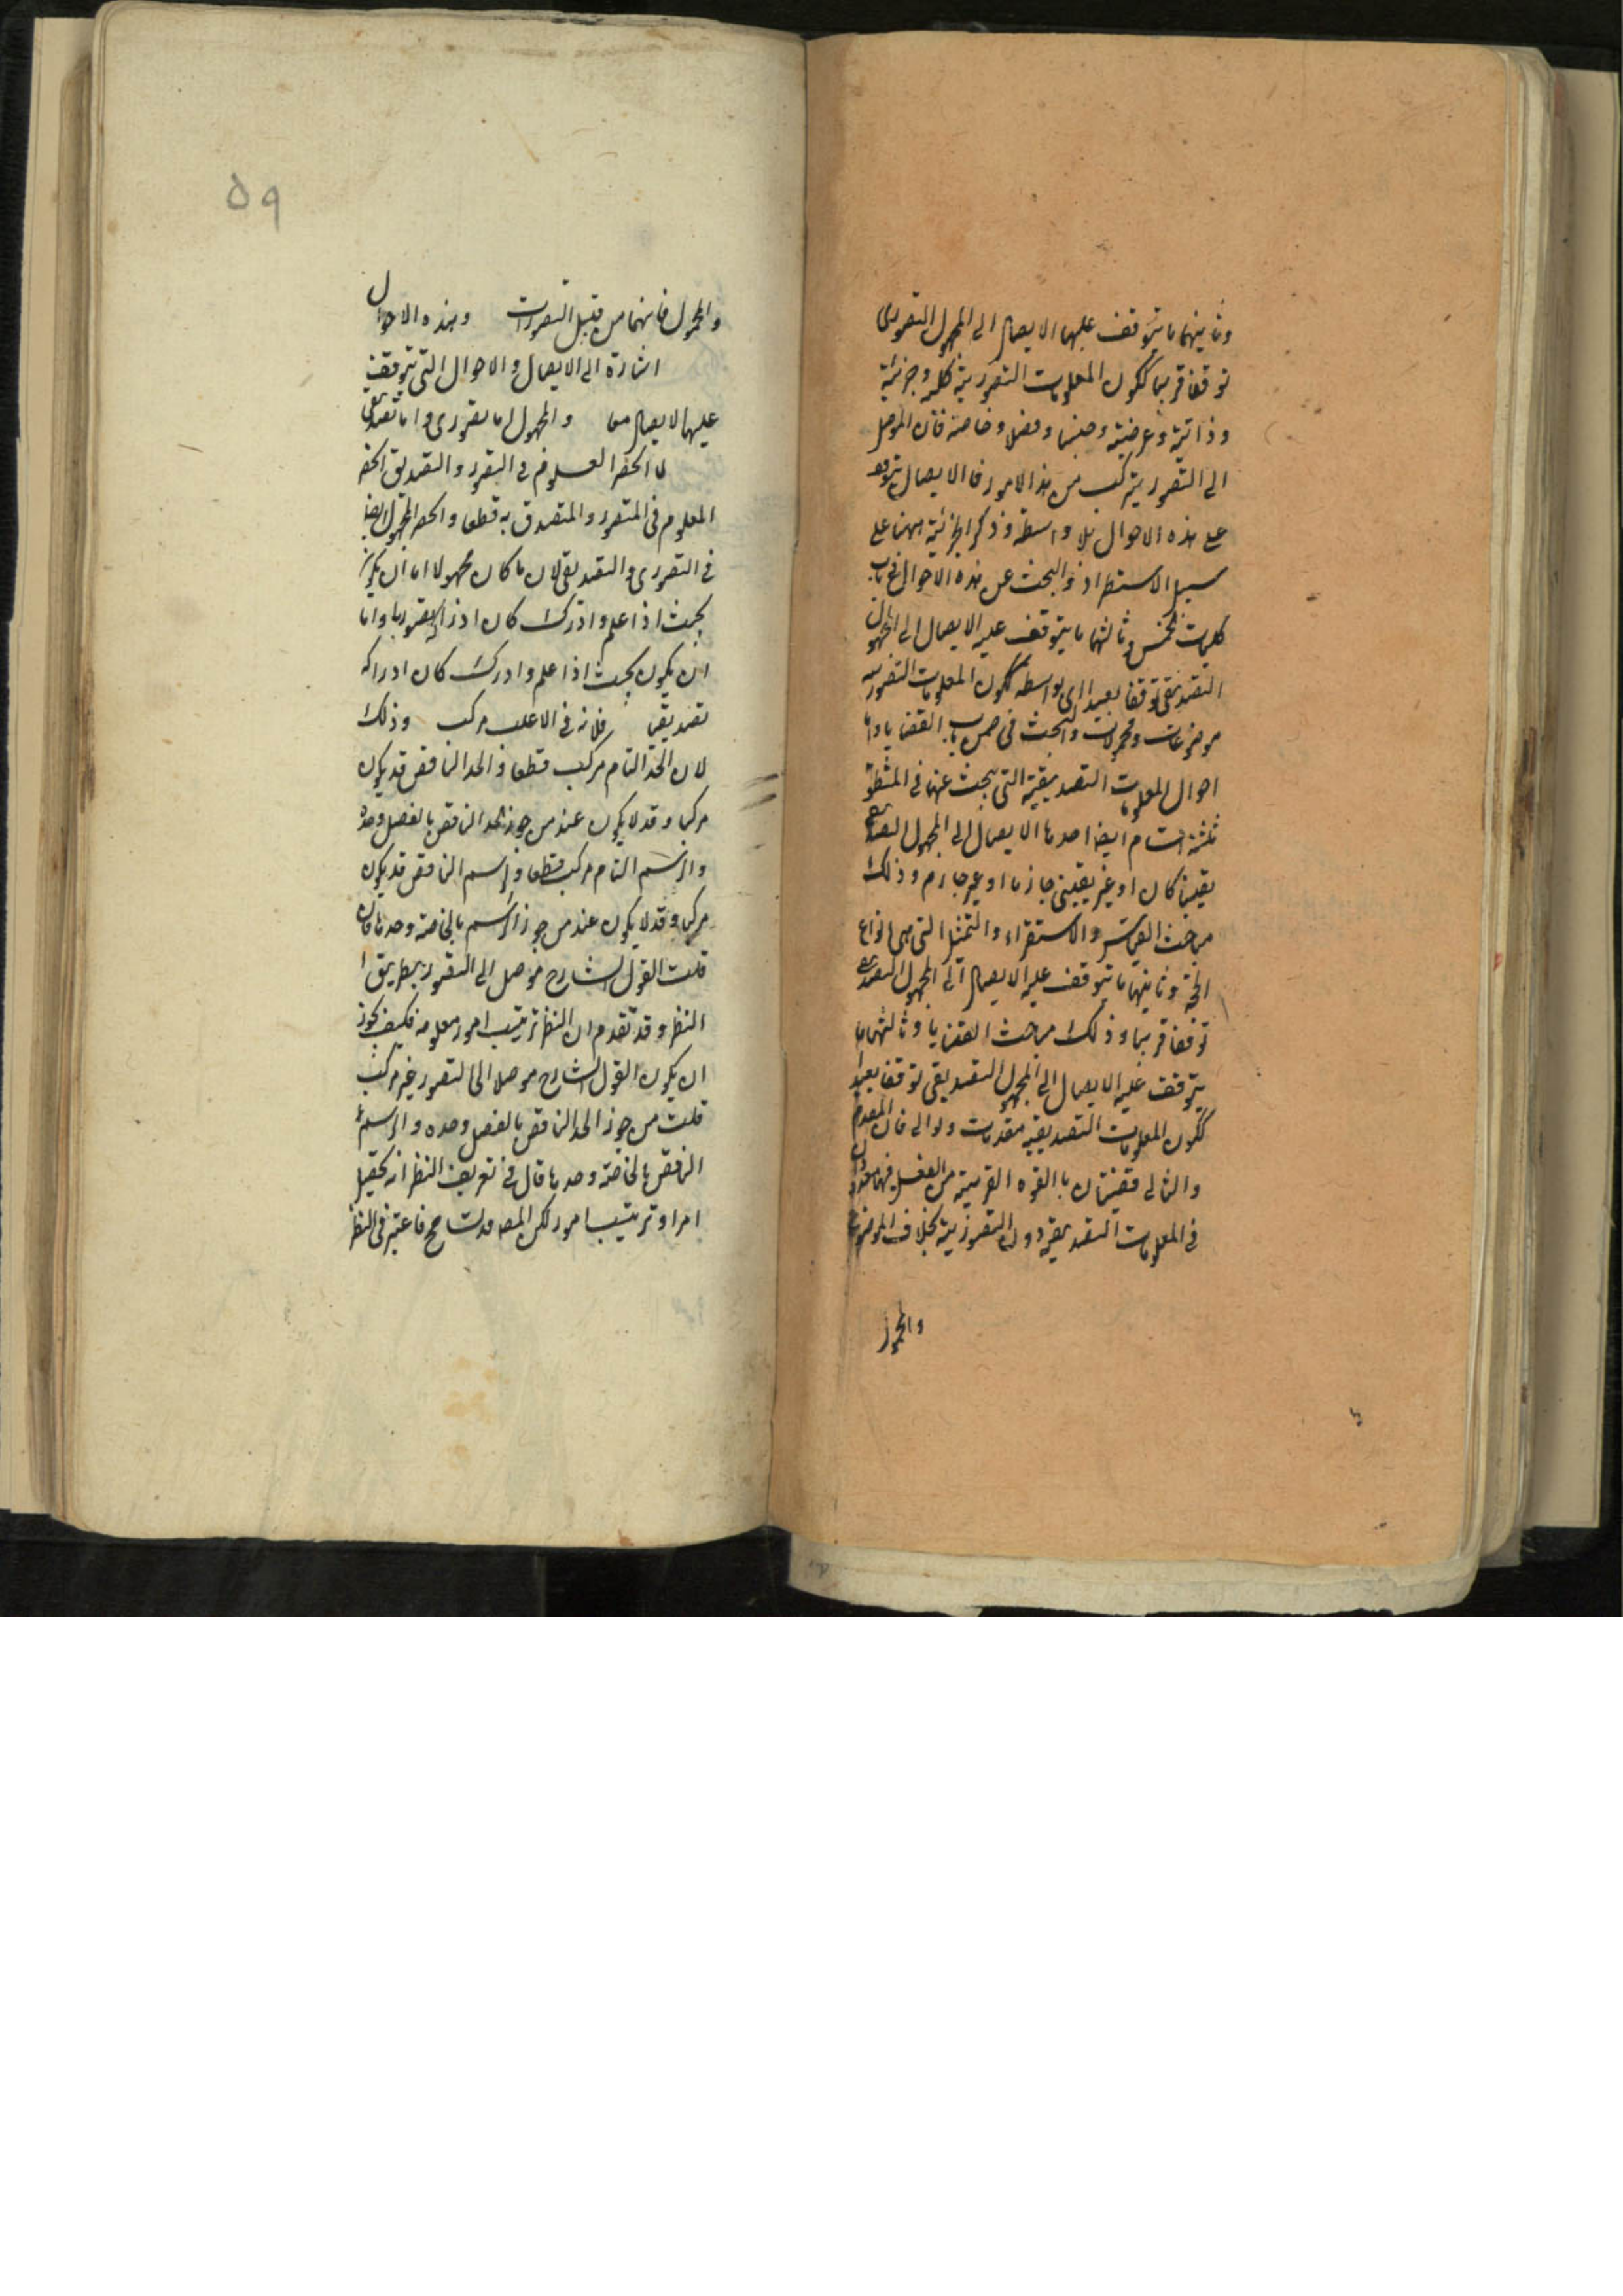 وثانيهما ما يتوقف عليها الايصال الى المجهول التصوري
توقفا قريبا ككون المعلومات التصورية كلية وجزئية
وذاتية وعرضية وجنسا وفصلا وخاصة فان الموصل
الى التصور يتركب من هذا الامور فالايصال يتوقف
على هذه الاحوال بلا واسطة وذكر الجزئية ههنا على
سبيل الاستطراد والبحث عن هذه الاحوال في باب
كليات الخمس وثالثها ما يتوقف عليه الايصال الى المجهول
التصديقي توقفا بعيدا اى بواسطة ككون المعلومات التصورية
موضوعات ومحمولات والبحث في ضمن باب القضايا واما
احوال المعلومات التصديقية التي يبحث عنها في المنطق
ثلثة اقسام ايضا احدها الايصال الى المجهول التصديقي
يقينيا كان او غير يقيني جازما او غير جازم وذلك
مباحث القياس والاستقراء والتمثيل التي هي انواع
الحجة وثانيها ما يتوقف عليه الايصال الى المجهول التصديقي
توقفا قريبا وذلك مباحث القضايا وثالثها ما
يتوقف عليه الايصال الى المجهول التصديقي توقفا بعيدا
ككون المعلومات التصديقية مقدمات وتوالى فان المقدم
والتالى قضيتان بالقوه القريبة من الفعل فهما معدودان
في المعلومات التصديقية دون التصورية بخلاف الموضوع
والمحمول
۵۹
والمحمول فانهما من قبيل التصورات وهذه الاحوال
اشارة الى الايصال والاحوال التي يتوقف
عليها الايصال معا والمجهول اما تصورى واما تصديقي
لما انحصر العلوم في التصور والتصديق انحصر
المعلوم في المتصور والمتصدق به قطعا وانحصر المجهول ايضا
في التصورى والتصديقي لان ما كان مجهولا اما ان يكون
بحيث اذا علم وادرك كان ادراكه تصوريا واما
ان يكون بحيث اذا علم وادرك كان ادراكه
تصديقيا فلانه في الاغلب مركب وذلك
لان الحد التام مركب قطعا والحد الناقص قد يكون
مركبا وقد لا يكون عند من جوز الحد الناقص بالفصل وحده
والرسم التام مركب قطعا والرسم الناقص قد يكون
مركبا وقد لا يكون عند من جوز الرسم بالخاصة وحدها فان
قلت القول الشارح موصل الى التصور بطريق ا
النظر وقد تقدم ان النظر ترتيب امور معلومة فكيف يجوز
ان يكون القول الشارح موصلا الى التصور غير مركب
قلت من جوز الحد الناقص بالفصل وحده والرسم
الناقص بالخاصة وحدها قال في تعريف النظر انه تحصيل
امر او ترتيب امور لكن المصـ قد تسامح فاعتبر في النظر